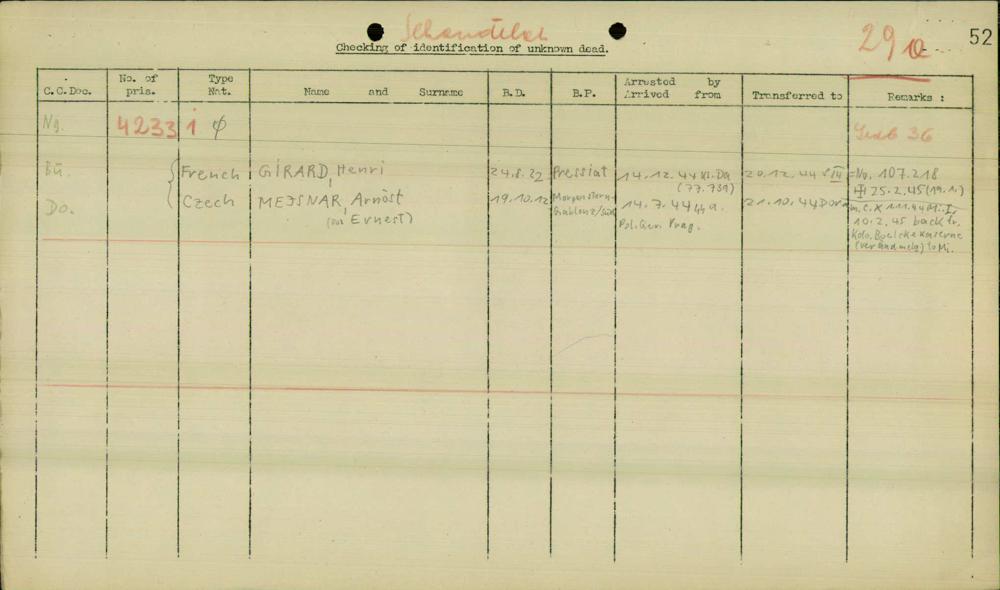 Schandelah
29a
52
Checking of identification of unknown dead.
C.C.Doc.
No. of pris.
Type Nat.
Name and Surname
B.D.
B.P.
Arrested by
Arrived from
Transferred to
Remarks :
Ng. 42331 φ 36
Bu. French GIRARD, Henri 24.8.22 Pressiat 14.12.44 Kl.Da (77.731) 20.12.44 S III =No. 107.218
25.2.45 (19.1.)
Do. Czech MEJSNAR, Arnošt 19.10.12 Morgenstern- 14.7.44 21.10.44 Dora m.c.X 1.11.44 Mi.I,
Ernest) Gablonz/ Pol.Gen. Prag. 10.2.45 back fr.
Kdo. Boelckekaserne
to Mi.